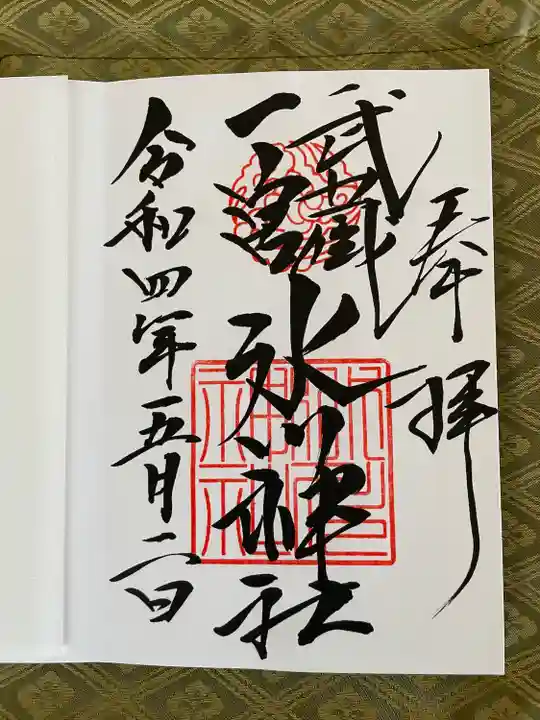 奉拝
武蔵
一宮
氷川神社
令和四年五月二日
氷川神社